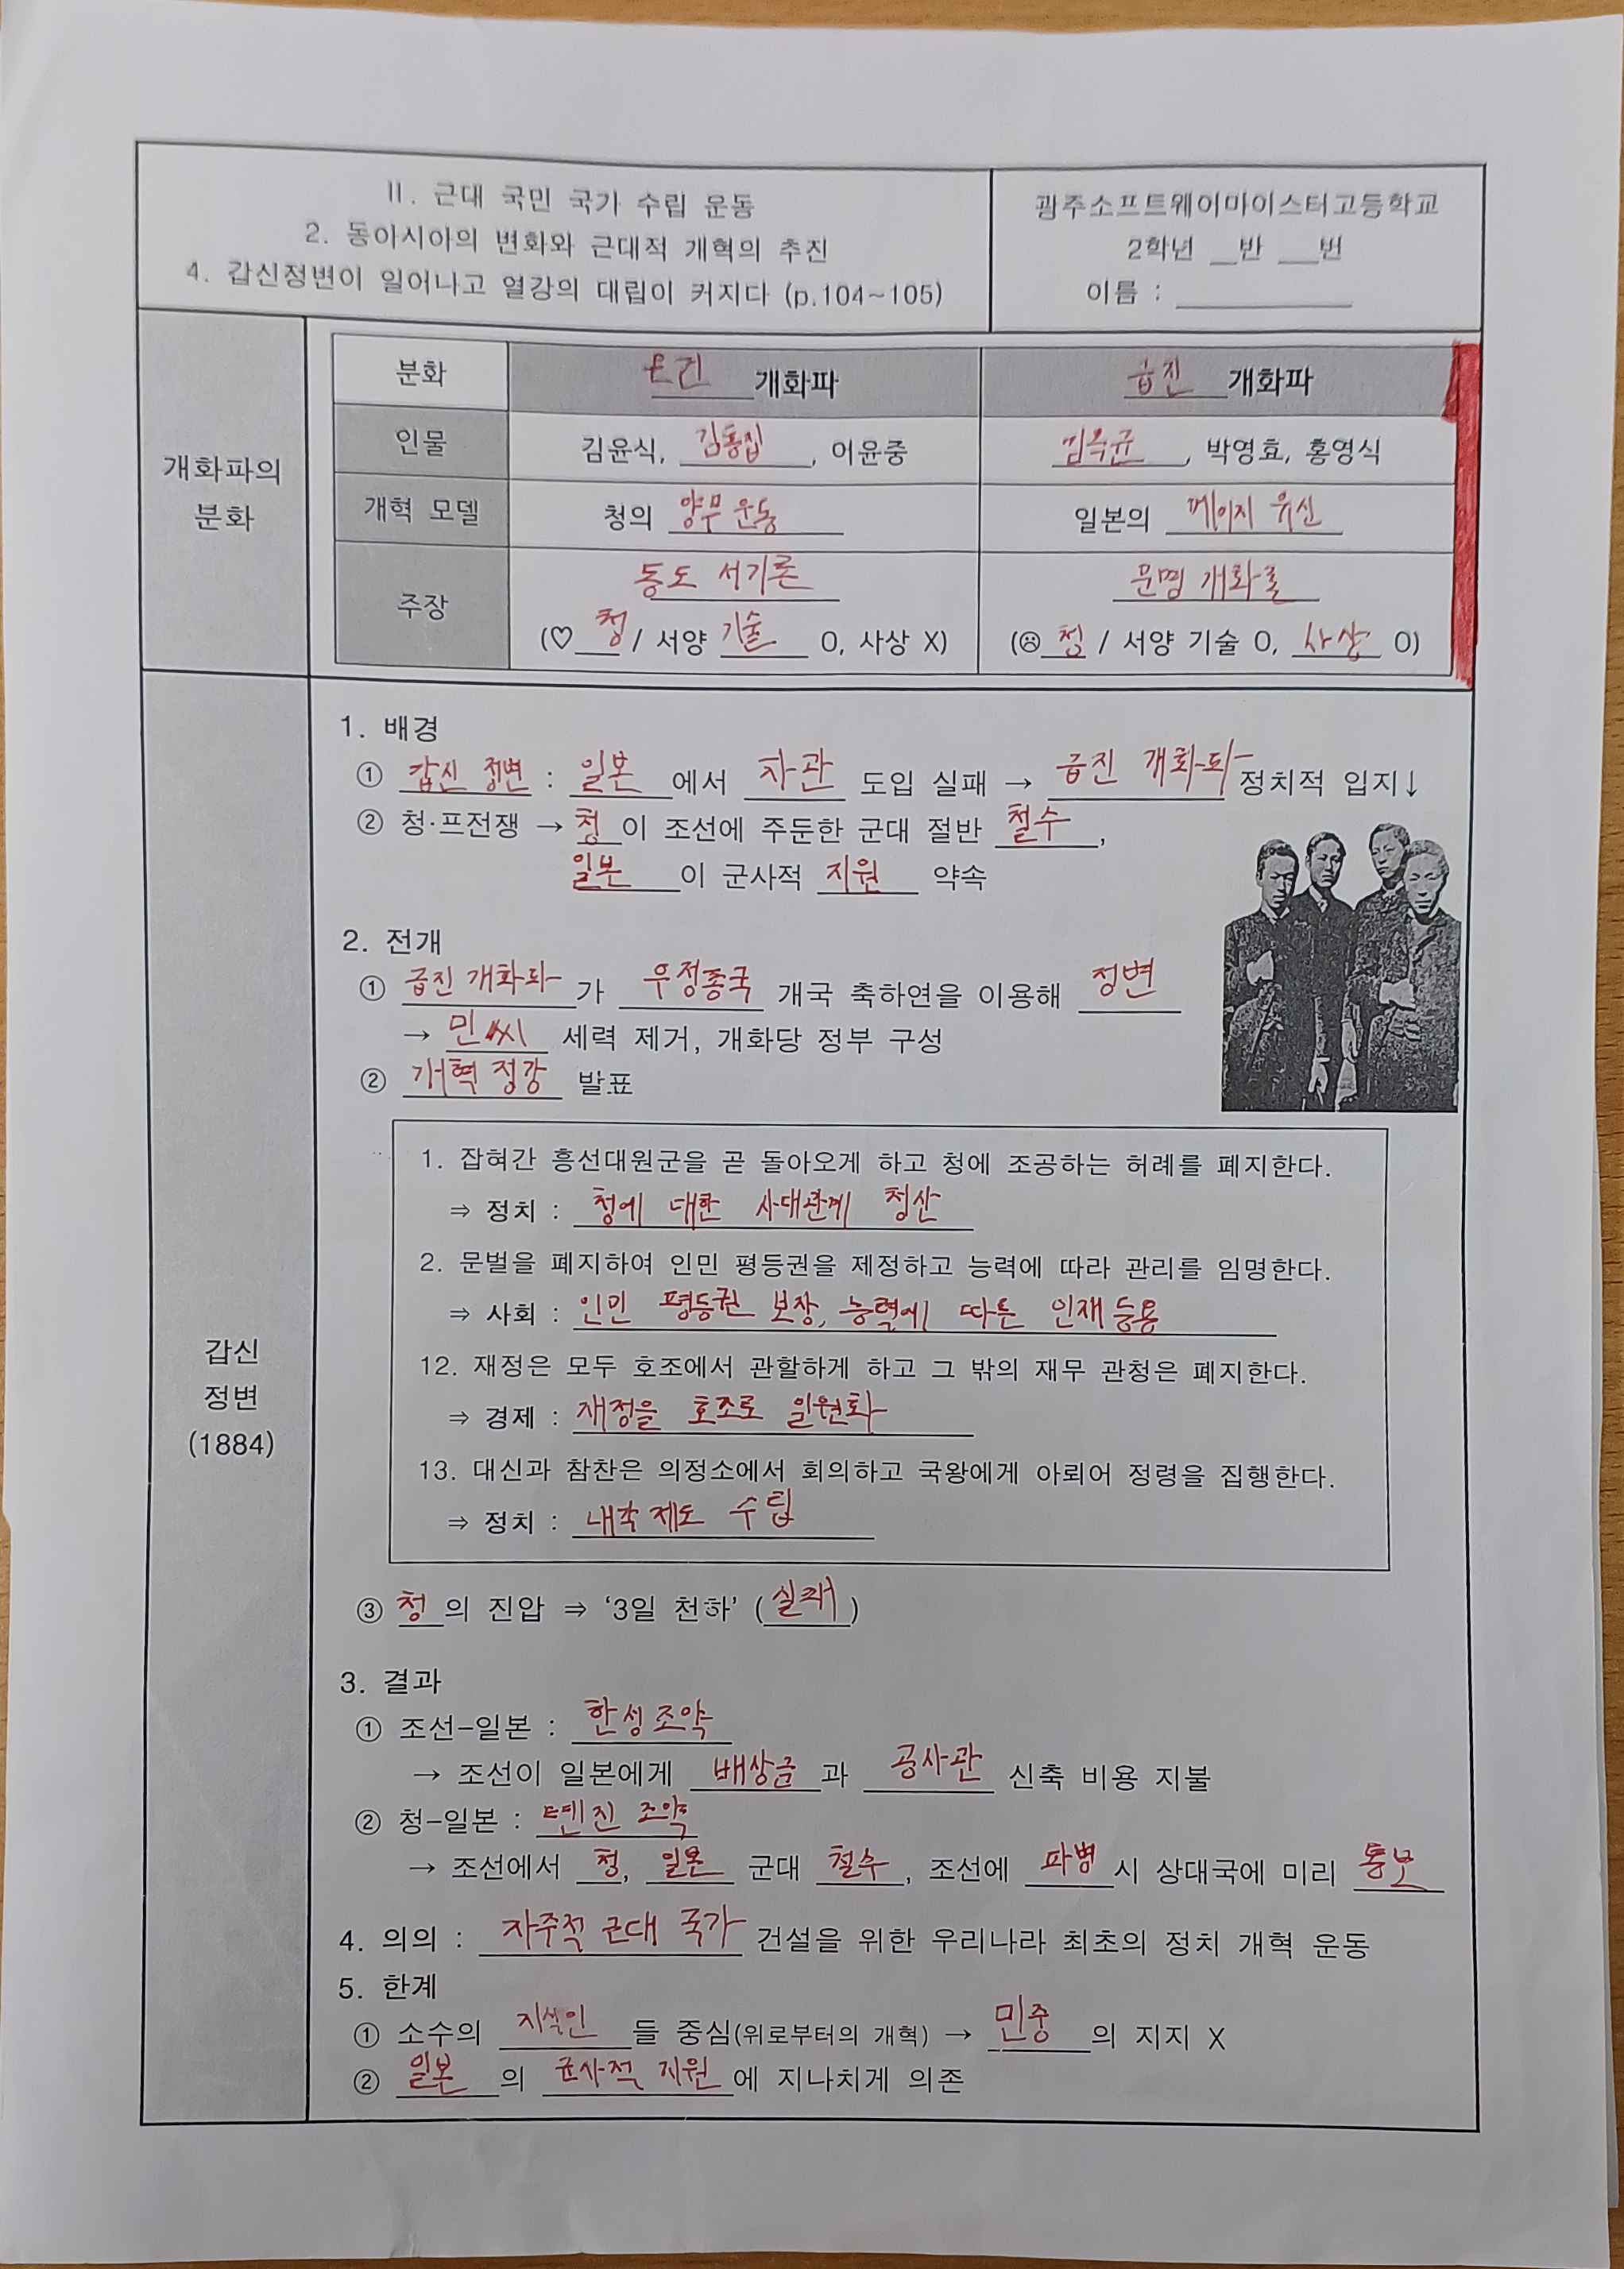 II. 근대 국민 국가 수립 운동
2. 동아시아의 변화와 근대적 개혁의 추진
4. 갑신정변이 일어나고 열강의 대립이 커지다 (p.104~105)
광주소프트웨어마이스터고등학교
2학년 __반 __번
이름 : ________
개화파의 분화
분화 온건 개화파 급진 개화파
인물 김윤식, 김홍집, 이윤중 김옥균, 박영효, 홍영식
개혁 모델 청의 양무 운동 일본의 메이지 유신
주장 동도 서기론 문명 개화론
(♡ 청 / 서양 기술 O, 사상 X) (☹ 청 / 서양 기술 O, 사상 O)
갑신
정변
(1884)
1. 배경
① 갑신 정변 : 일본에서 차관 도입 실패 → 급진 개화파 정치적 입지↓
② 청·프전쟁 → 청이 조선에 주둔한 군대 절반 철수,
일본이 군사적 지원 약속
2. 전개
① 급진 개화파가 우정총국 개국 축하연을 이용해 정변
→ 민씨 세력 제거, 개화당 정부 구성
② 개혁 정강 발표
1. 잡혀간 흥선대원군을 곧 돌아오게 하고 청에 조공하는 허례를 폐지한다.
⇒ 정치 : 청에 대한 사대관계 청산
2. 문벌을 폐지하여 인민 평등권을 제정하고 능력에 따라 관리를 임명한다.
⇒ 사회 : 인민 평등권 보장, 능력에 따른 인재 등용
12. 재정은 모두 호조에서 관할하게 하고 그 밖의 재무 관청은 폐지한다.
⇒ 경제 : 재정을 호조로 일원화
13. 대신과 참찬은 의정소에서 회의하고 국왕에게 아뢰어 정령을 집행한다.
⇒ 정치 : 내각 제도 수립
③ 청의 진압 ⇒ ‘3일 천하’ (실패)
3. 결과
① 조선-일본 : 한성 조약
→ 조선이 일본에게 배상금과 공사관 신축 비용 지불
② 청-일본 : 톈진 조약
→ 조선에서 청, 일본 군대 철수, 조선에 파병시 상대국에 미리 통보
4. 의의 : 자주적 근대 국가 건설을 위한 우리나라 최초의 정치 개혁 운동
5. 한계
① 소수의 지식인들 중심(위로부터의 개혁) → 민중의 지지 X
② 일본의 군사적 지원에 지나치게 의존